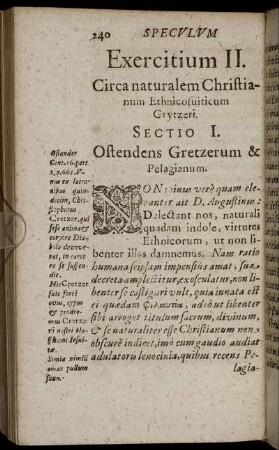 240 SPECVLVM
Exercitium II.
Circa naturalem Christia-
num Ethnicosuiticum
Crytzeri.
SECTIO I.
Ostendens Gretzerum &
Pelagianum.
NON minus verè quam ele-
ganter ait D. Augustinus:
Delectant nos, naturali
quadam indole, virtutes
Ethnicorum, ut non li-
benter illas damnemus. Nam ratio
humana seipsam impensius amat, sua
decreta amplectitur, exosculatur, non li-
benter se castigari vult, quia innata est
ei quædam φιλαυτία, adeò ut libenter
sibi arroget titulum sacrum, divinum,
& se naturaliter esse Christianum non
obscurè indicet, imò cum gaudio audiat
adulatoru lenocinia, quibus recens Pe-
lagia-
Osiander
Cent. 16. part
2. p. 661. V-
nus ex latro-
nibus quin-
decim, Chri-
stophorus
Cretzer, qui
sese anima &
corpore Dia-
bolo devove-
rat, in carce
re se suspen-
dit.
Hic Cretzer
fuit fortè
avus, typus
& prodro-
mus Cretze-
ri nostri Na-
si homi Iesui-
tæ.
Simia nimiũ
amat pullum
suum.